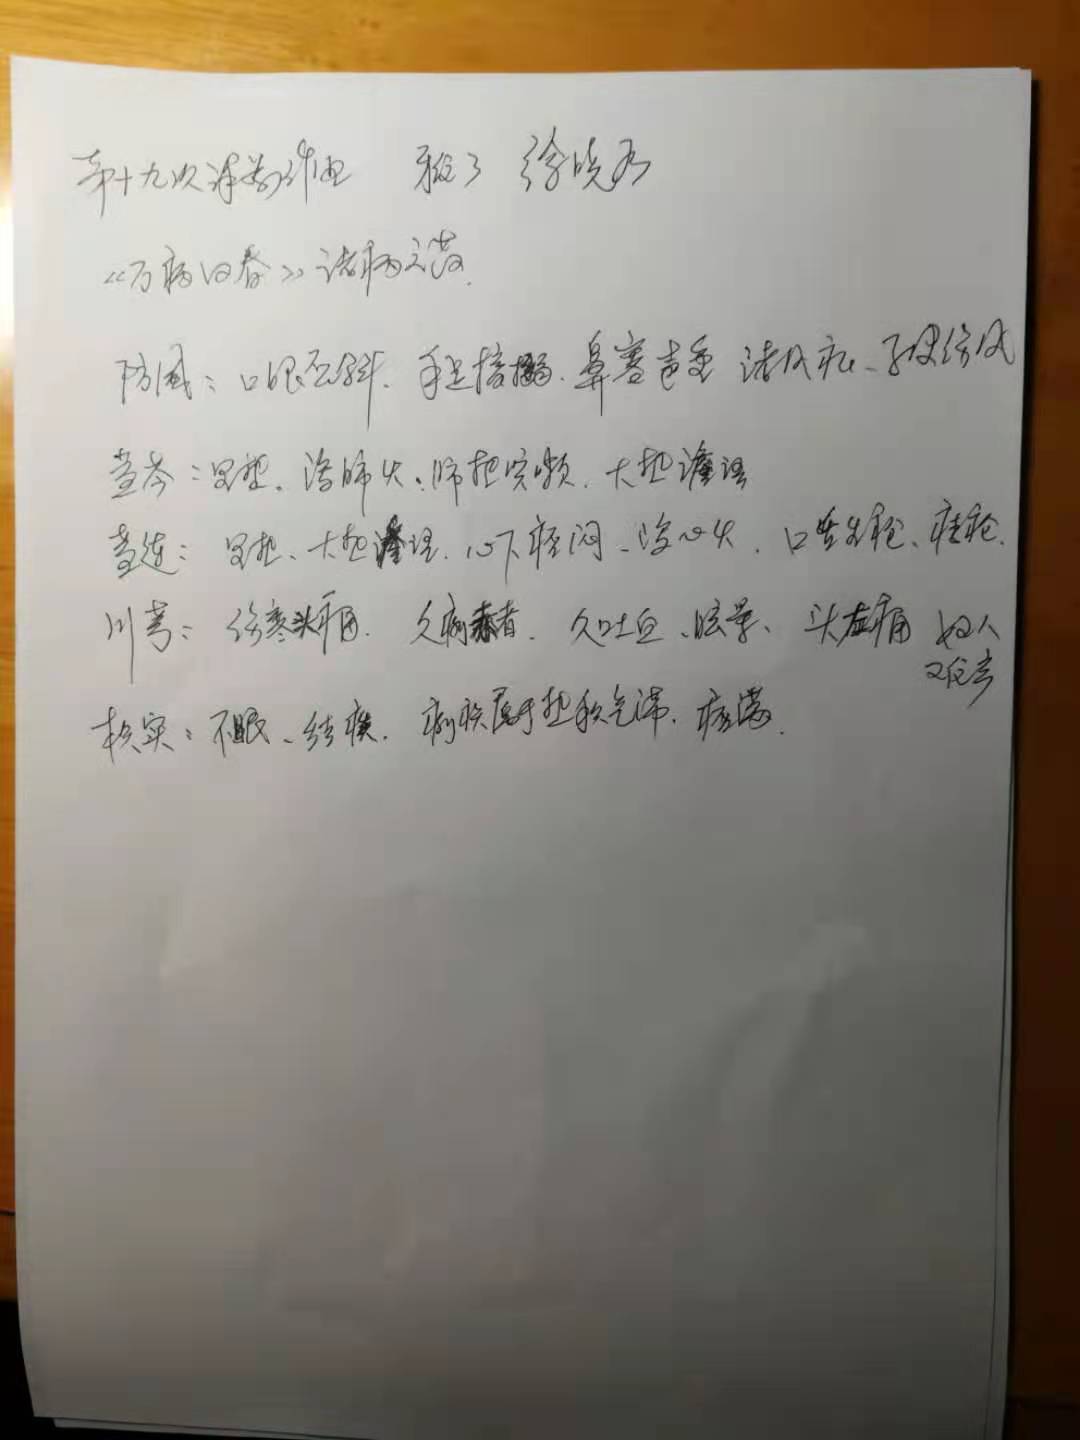 第十九次课前作业 雅3 徐晓
《万病回春》诸病主药
防风：口眼歪斜、手足搐搦、鼻塞声重 诸风 破伤风
黄芩：里热、泻肺火、肺热咳嗽、大热谵语
黄连：里热、大热谵语、心下痞闷、泻心火、口舌生疮、痔疮、
川芎：伤寒头痛、久病 者、久吐血、眩晕、头左痛 妇人
难产
枳实：不眠、结痰、痢疾属于热积气滞、痞满、